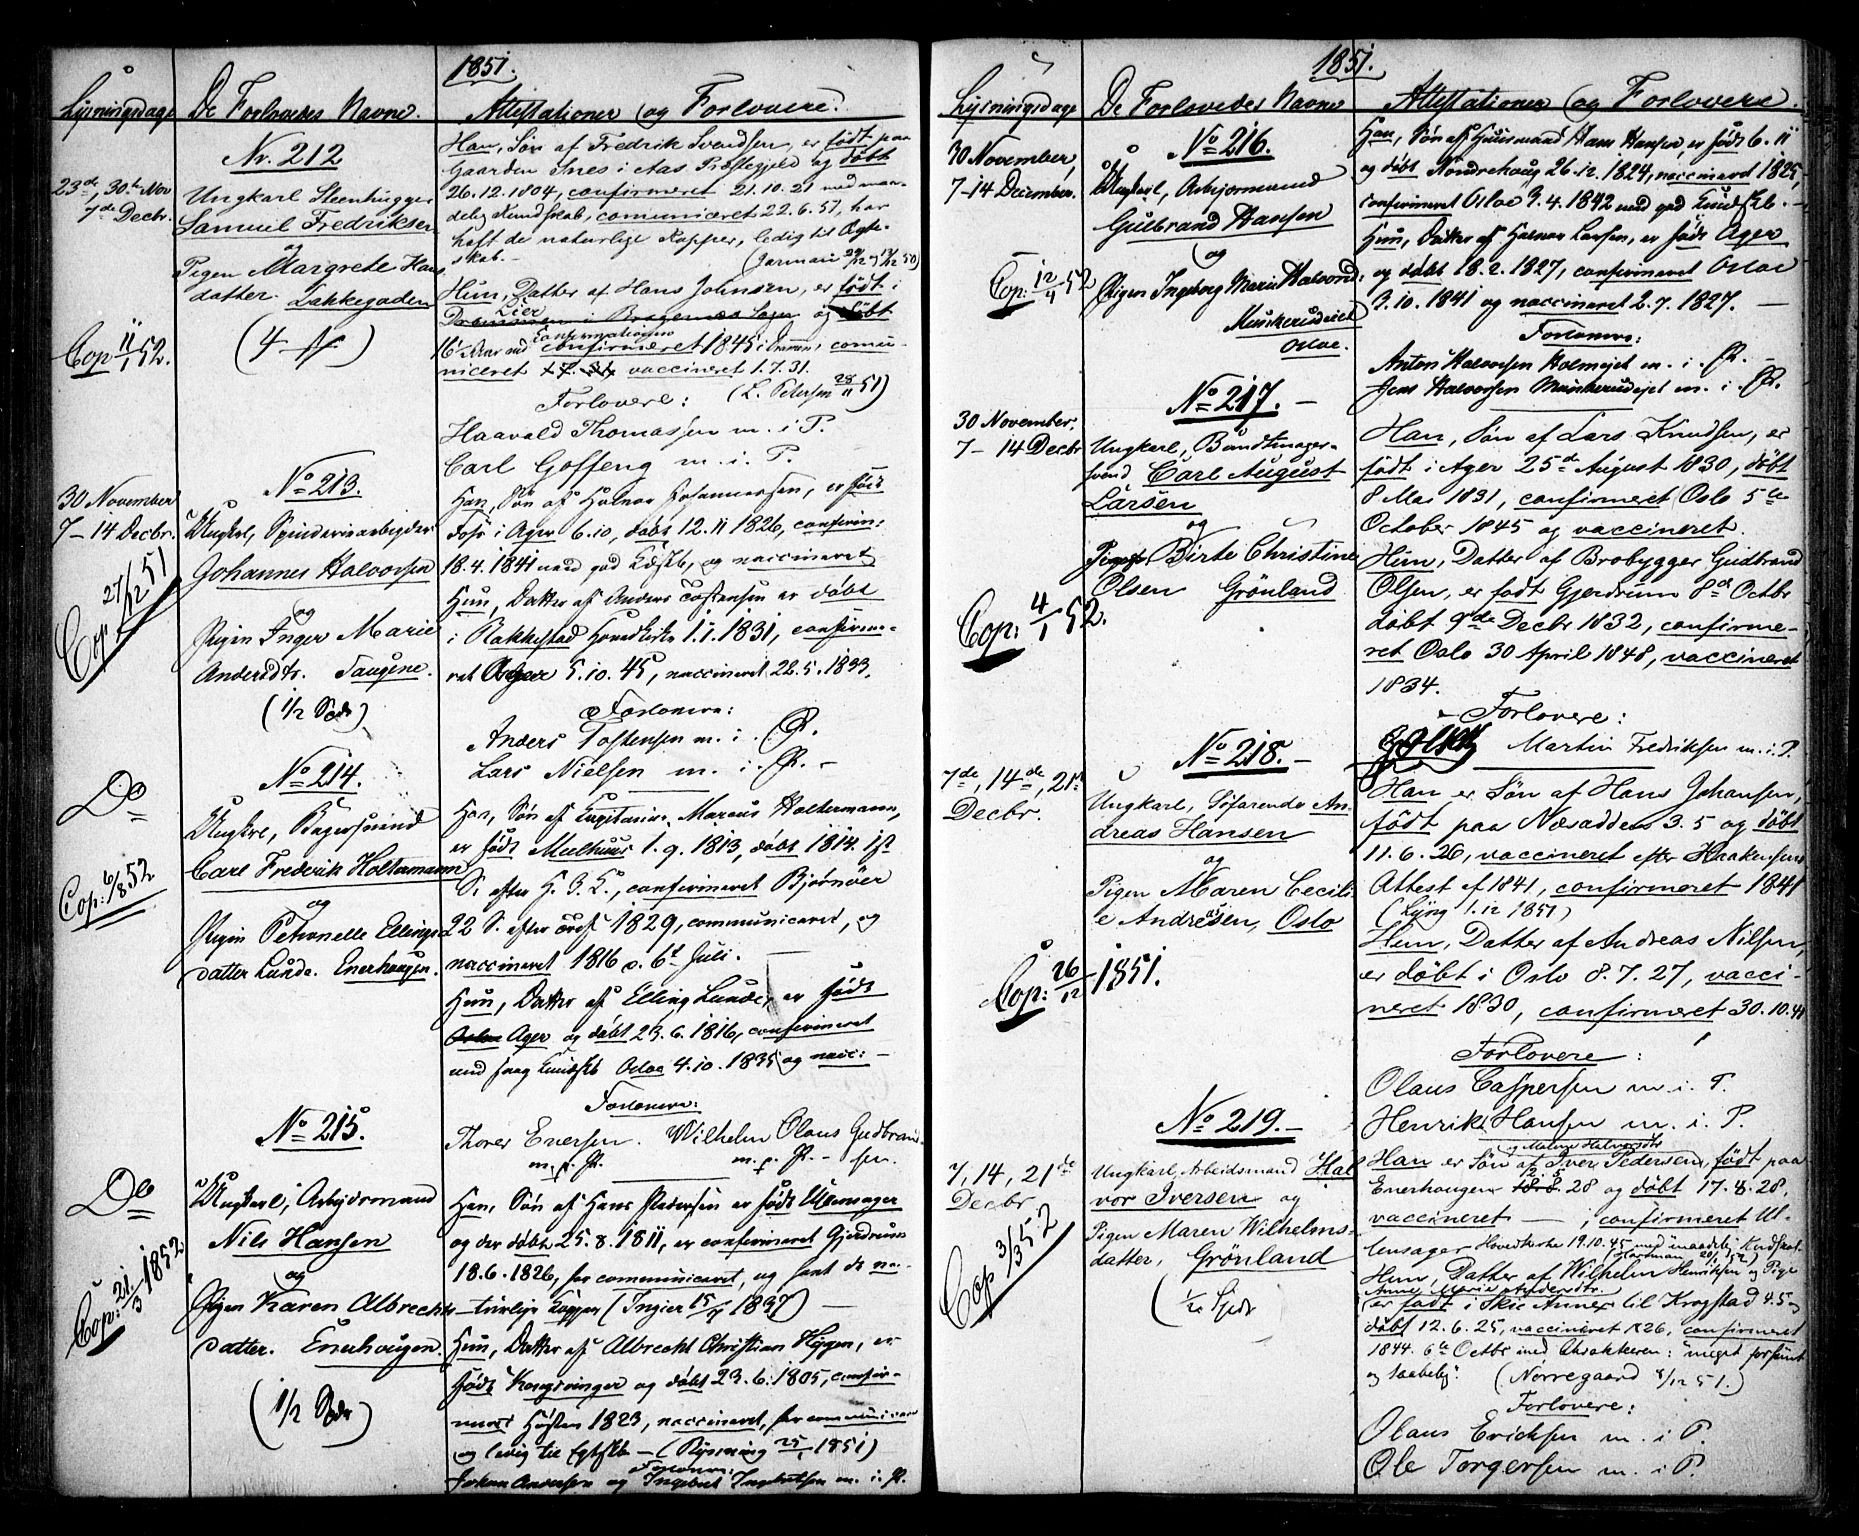 1851.
Lysningsdage De Forlovedes Navne. Attestationer og Forlovere.
Nr. 212
23de, 30te Nov
7de Decbr.
Ungkarl Steenhugger
Samuel Fredriksen
og
Pigen Margrete Hans
datter. Lakkegaden
(4 )
Cop 11/1 52.
Han, Søn af Fredrik Svendsen, er født paa
Gaarden Snes i Aas Præstegjeld og døbt
26.12.1804, confirmeret 21.10.21 med maa-
delig Kundskab, comuniceret 22.6.51, har
haft de naturlige Kopper, ledig til Ægte-
skab.
Hun, Datter af Hans Johnsen, er født i
Lier
Drammen i Bragernes Sogn og døbt
confirmeret 1845 i Dramm, comu-
niceret vaccineret 1.7.31.
Forlovere: (L. Petersen 28/11 51)
Haavald Thomassen m. i P.
Carl Goffeng m. i. P.
No 213.
30 November
7-14 Decbr.
Ungkl, Spinderiarbeider
Johannes Halvorsen
og
Pigen Inger Marie
Andersdtr. Saugene.
(1/2 Spdr)
Cop. 27/12 51
Han, Søn af Halvor Johannessen, er født
i Ager 6.10, døbt 12.11 1826, confirm:
18.4.1841 med god Kdskb, og vaccineret
Hun, Datter af Anders Tostensen er døbt
i Rakkestad Hovedkirke 1.1.1831, confirme-
ret Ager 5.10.45, vaccineret 22.5.1833.
Forlovere:
Anders Tostensen m. i. P.
Lars Nielsen m. i. P. -
No 214.
Do
Ungkl, Bagersvend
Carl Frederik Holtermann
og
Pigen Petronelle Ellings
datter Lunde. Enerhaugen.
Cop: 6/8 52
Han, Søn af Capitain Marcus Holtermann,
er født Meelhuus 1.9.1813, døbt 1814. 1st
S. efter H. 3 K., confirmeret Bjørnøer
22 S. efter Tref 1829, communiceret, og
vaccineret 1816 d. 6t Juli.
Hun, Datter af Elling Lunde, er født
Oslo Ager og døbt 23.6.1816, confirmeret
med svag Kundskb Osloe 4.10.1835 og vacc: -
Forlovere:
Thorer Enersen. Wilhelm Olaus Gudbrand-
m. p. P. m. p. P. - sen.
No 215.
Do
Ungkarl, Arbeidsmand
Nils Hansen
og
Pigen Karen Albrechts-
datter. Enerhougen.
(1/2 Spdr)
Cop: 21/3 1852.
Han, Søn af Hans Pedersen er født Ullensager
og der døbt 25.8.1811, er confirmeret Gjerdrum
18.6.1826, har communiceret, og havt de na-
turlige Kopper (Ingier 15/ 1837)
Hun, Datter af Albrecht Christian Hygen, er
født Kongsvinger og døbt 23.6.1805, confir-
meret Høsten 1823, vaccineret, har communiceret
og ledig til Egtskb - (Rynning 25/ 1851)
Forlovere:
Johan Andersen og Ingebret Ingebretsen m. i. P.
1851.
Lysningsdage De Forlovedes Navne Attestationer og Forlovere.
No 216.
30 November,
7-14 December.
Ungkarl, Arbeidsmand
Gulbrand Hansen
og
Pigen Ingeborg Marie Halvord:
Munkerudeiet
Osloe.
Cop: 12/4 52
Han, Søn af Huusmand Hans Hansen, er født 6.11
og døbt Nordrehoug 26.12.1824, vaccinerd 1825,
confirmeret Osloe 3.4.1842 med god Kundskb. -
Hun, Datter af Halvor Larsen, er født Ager
og døbt 18.2.1827, confirmeret Osloe
3.10.1841 og vaccineret 2.7.1827. -
Forlovere:
Anton Halvorsen Holmejet m. i. P. -
Jens Halvorsen Munkerudejet m. i P.
No 217. -
30 November.
7-14 Decbr
Ungkarl, Bundtmager-
svend Carl August
Larsen
og
Pigen Birte Christine
Olsen Grönland
Cop: 4/1 52.
Han, Søn af Lars Knudsen, er
født i Ager 25d August 1830, døbt
8 Mai 1831, confirmeret Oslo 5te
October 1845 og vaccineret.
Hun, Datter af Brobygger Gudbrand
Olsen, er født Gjerdrum 8d Octbr
døbt 9de Decbr 1832, confirme-
ret Oslo 30 April 1848, vaccineret
1834.
Forlovere:
Martin Fredriksen m. i. P.
No 218. -
7de, 14de, 21de
Decbr.
Ungkarl, Søfarende An-
dreas Hansen
og
Pigen Maren Cecili-
e Andreasen, Oslo
Cop: 26/12 1851.
Han er Søn af Hans Johansen,
født paa Næsodden 3.5 og døbt
11.6.26, vaccineret efter Haakensens
Attest af 1841, confirmeret 1841
(Lyng 1.12 1851)
Hun, Datter af Andreas Nilsen,
er døbt i Oslo 8.7.27, vacci-
neret 1830, confirmeret 30.10.41
Forlovere:
Olaus Caspersen m. i. P.
Henrik Hansen m. i. P.
No 219. -
7, 14, 21de
Decbr
Ungkarl, Arbeidsmand Hal
vor Iversen og
Pigen Maren Wilhelms-
datter, Grönland
(1/2 Spdr
Cop 3/3 52
og Malene Halvorsdtr
Han er Søn af Iver Pedersen, født paa
Enerhaugen 18.8.28 og døbt 17.8.28,
vaccineret - i, confirmeret Ul-
lensager Hovedkirke 19.10.45 med maadelig Kndskab.
Hun, Datter af Wilhelm Henriksen og Pige
Anne Marie Andersdtr.
er født i Skie Annex til Kragstad 4.5 og
døbt 12.6.25, vaccineret 1826, confirmeret
1844. 6te Octbr med Charakteren: "meget forsømt
og taabelig". (Norregaard 4/12 51.)
Forlovere:
Olaus Ericksen m. i P.
Ole Torgersen m. i P.